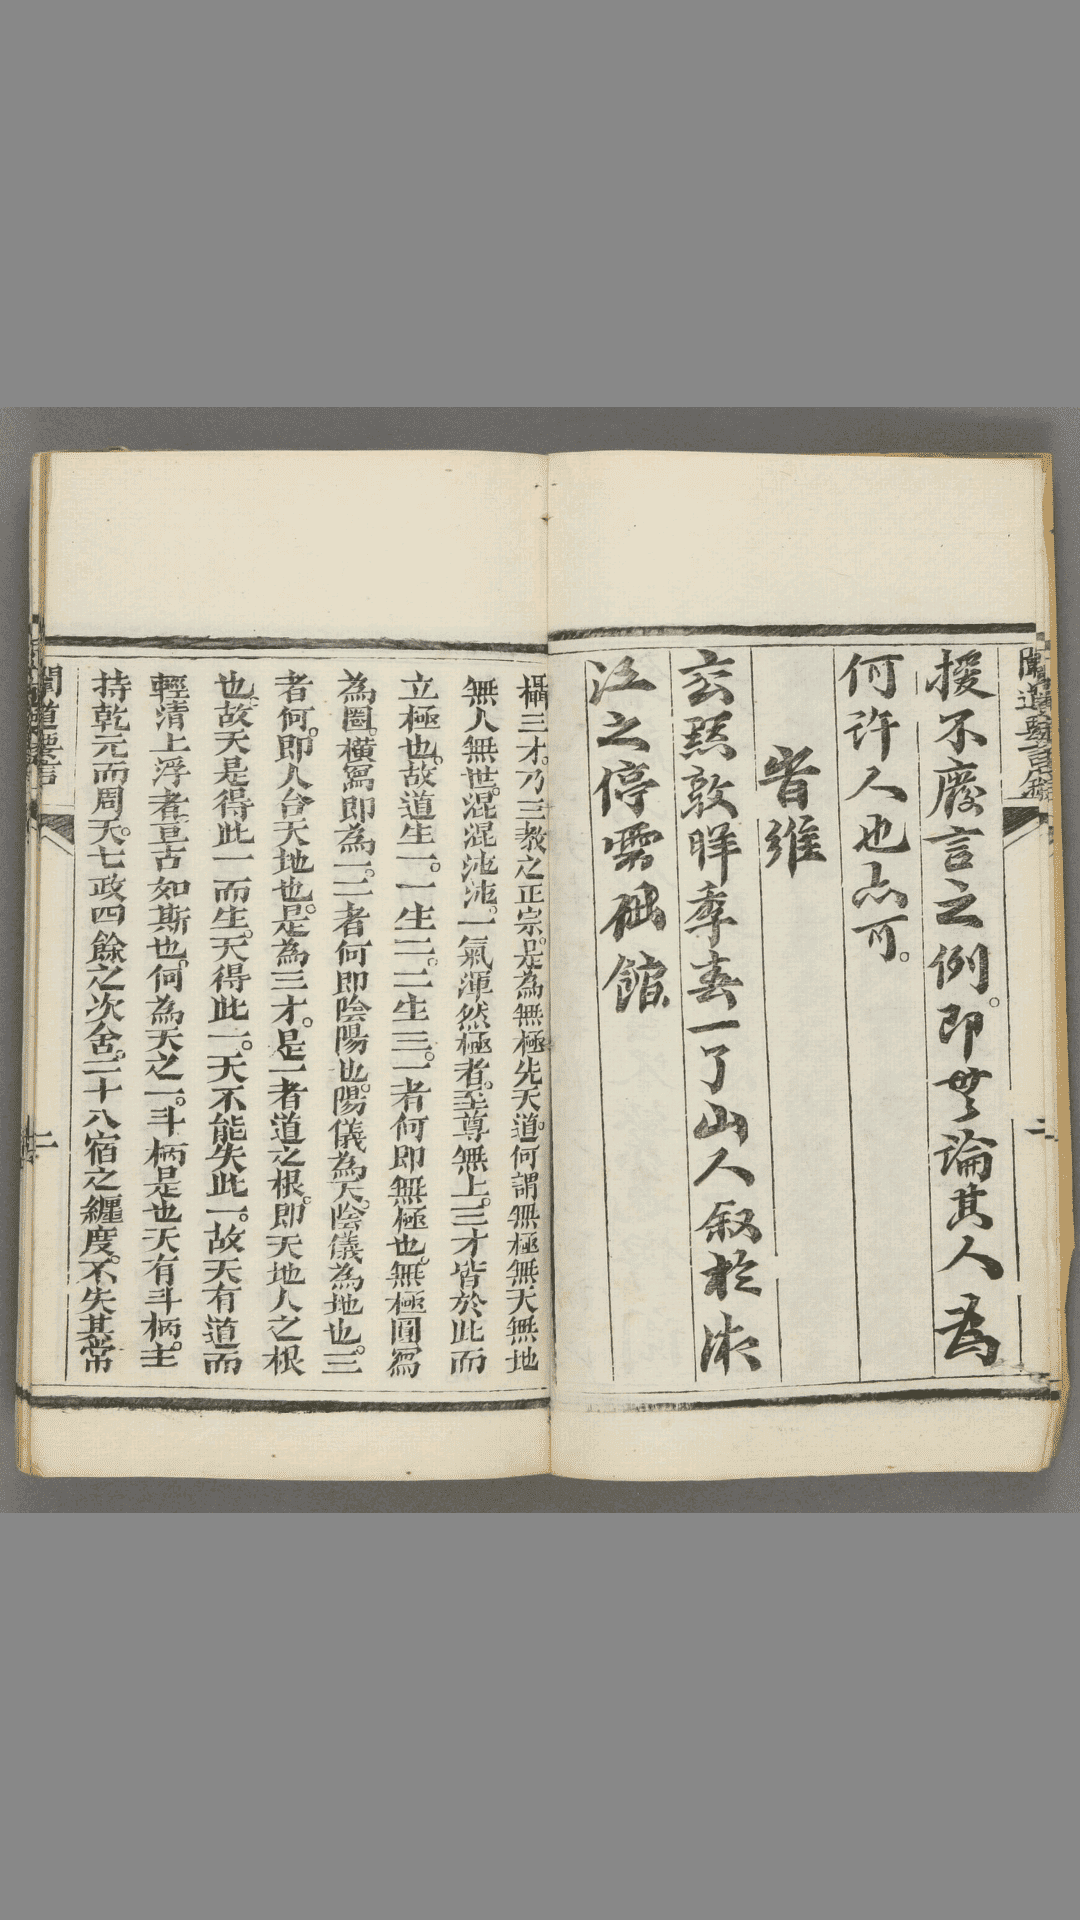 聞道要言
援不廢言之例。即無論其人為
何許人也亦可。
旹維
玄黓敦牂季春一了山人叙於沭
江之停雲砥館
攝三才。乃三教之正宗。是為無極先天道。何謂無極無天無地
無人無世。混混沌沌。一氣渾然極者。至尊無上。三才皆於此而
立極也。故道生一。一生二。二生三。一者何即無極也。無極圓寫
為圈。橫寫即為一。二者何即陰陽也。陽儀為天。陰儀為地也。三
者何。即人合天地也。是為三才。是一者道之根。即天地人之根
也。故天是得此一而生。天得此一。天不能失此一。故天有道而
輕清上浮者亘古如斯也。何為天之一。斗柄是也天有斗柄。主
持乾元而周天。七政四餘之次舍。二十八宿之纏度。不失其常
聞道要言
二